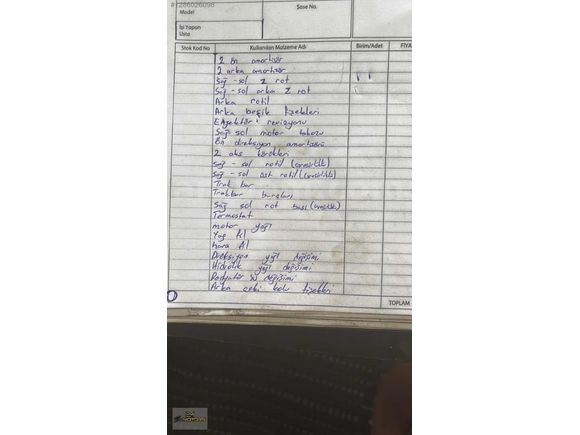 Model
Şase No.
İşi Yapan
Usta
Stok Kod No Kullanılan Malzeme Adı Birim/Adet FİYA
2 ön amortisör
2 arka amortisör
Sağ - sol z rot
Sağ - sol arka z rot
Arka rotil
Arka beşik fizekleri
Enjektör revizyonu
Sağ sol motor takozu
Ön direksiyon amortisörü
2 aks körükleri
Sağ - sol rotil
Sağ - sol üst rotil
Trak bar
Trakbar burçları
Sağ sol rot başı
Termostat
motor yağı
Yağ fil
hava fil
Direksiyon yağı değişimi
Hidrolik yağı değişimi
Radyatör su değişimi
Arka kolu fizekleri
TOPLAM